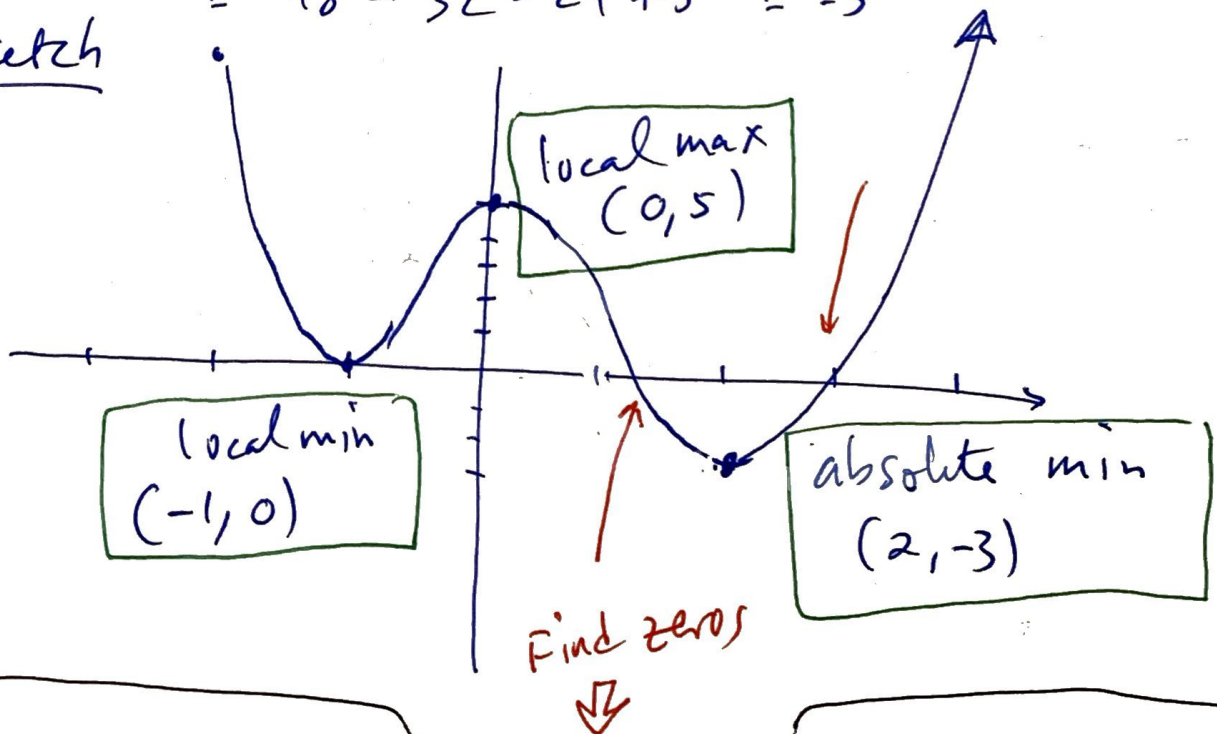 local max
(0,5)
local min
(-1, 0)
absolute min
(2, -3)
Find zeros